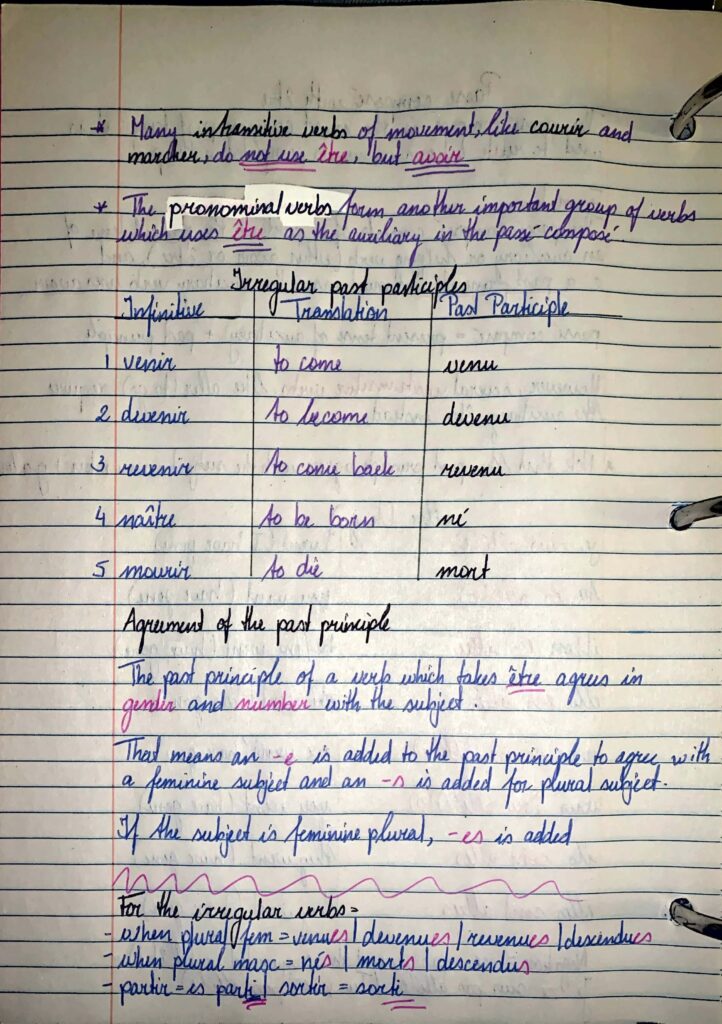 * Many intransitive verbs of movement, like courir and
marcher, do not use être, but avoir
* The pronominal verbs form another important group of verbs
which uses être as the auxiliary in the passé composé.
Irregular past participles
Infinitive Translation Past Participle
1 venir to come venu
2 devenir to become devenu
3 revenir to come back revenu
4 naître to be born né
5 mourir to die mort
Agreement of the past principle
The past principle of a verb which takes être agrees in
gender and number with the subject.
That means an -e is added to the past principle to agree with
a feminine subject and an -s is added for plural subject.
If the subject is feminine plural, -es is added
For the irregular verbs =
- when plural fem = venues | devenues | revenues | descendues
- when plural masc = nés | morts | descendus
- partir = is parti | sortir = sorti